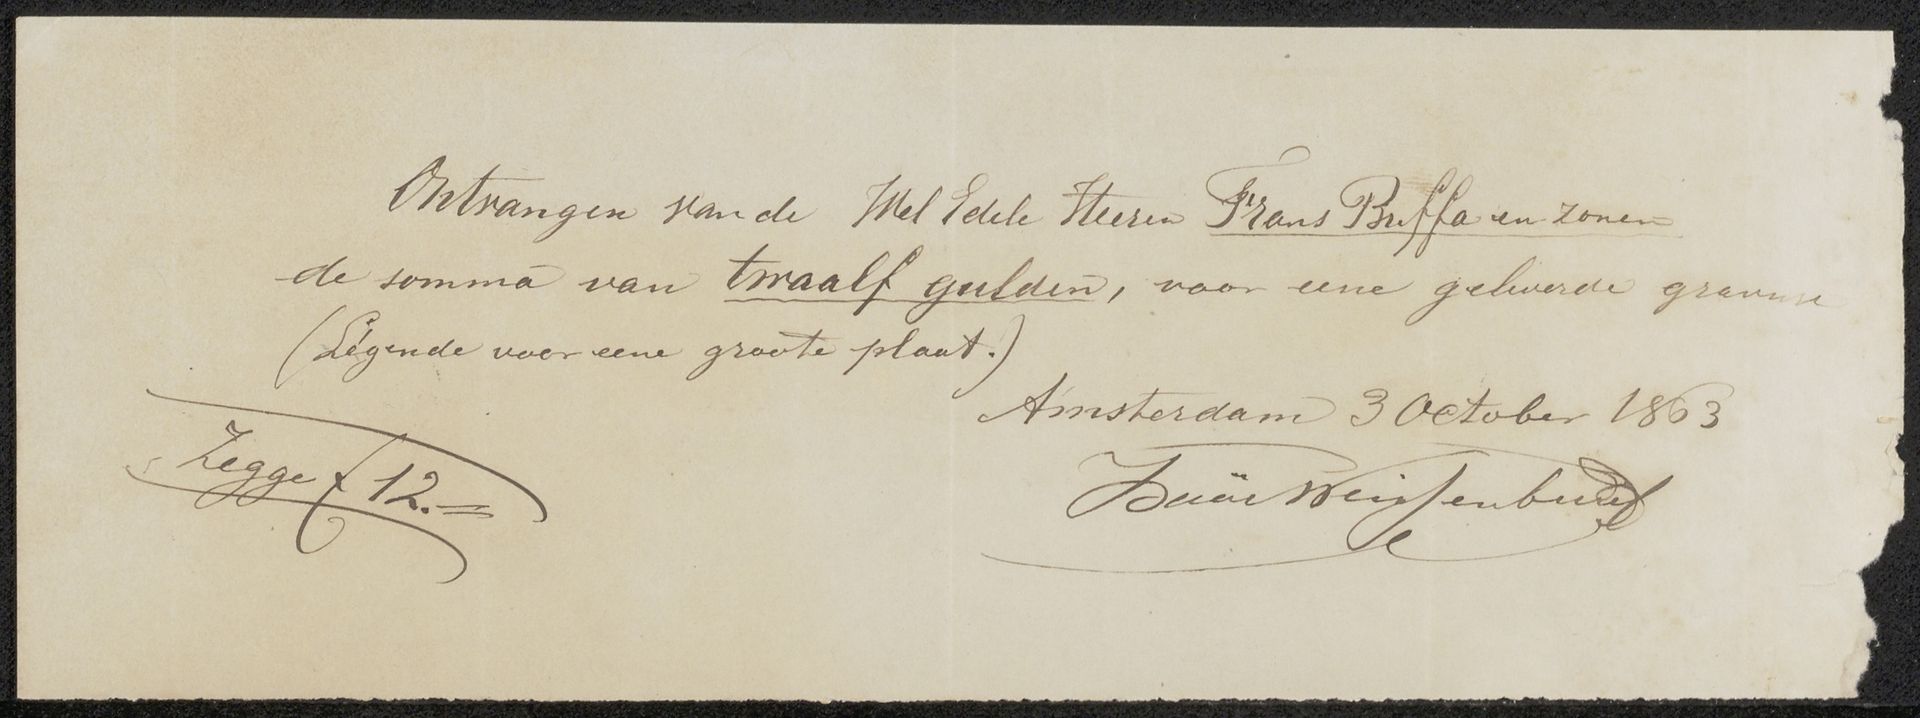 Ontvangen van de Wel Edele Heeren Frans Buffa en zonen
de somma van twaalf gulden, voor eene geleverde gravure
(Légende voor eene groote plaat.)
Amsterdam 3 October 1863
Zegge f 12.=
Isaac Weissenbruch